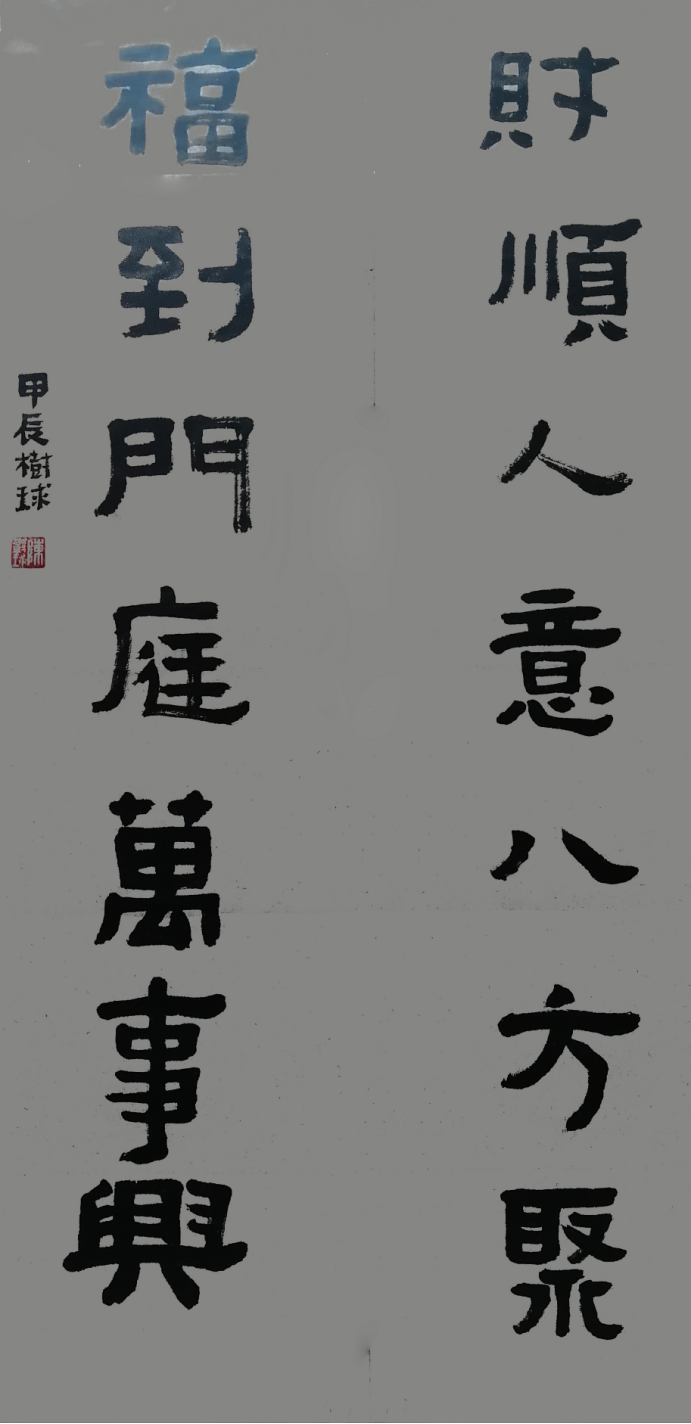 財順人意八方聚
福到門庭萬事興
甲辰樹球